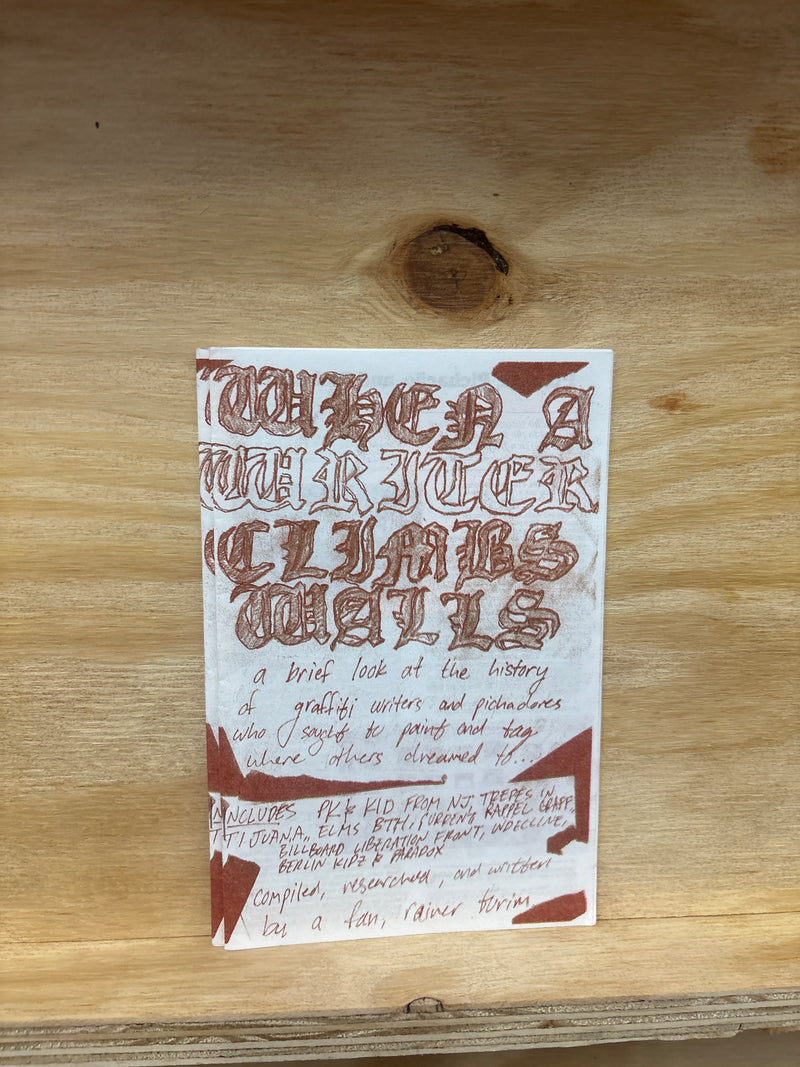 WHEN A
WRITER
CLIMBS
WALLS
a brief look at the history
of graffiti writers and pichadores
who sought to paint and tag
where others dreamed to...
INCLUDES PK & KID FROM NJ, TREPES IN
TIJUANA, ELMS BTM, CURRENT RAPPEL GRAFF,
BILLBOARD LIBERATION FRONT, INDECLINE,
BERLIN KIDZ & PARADOX
compiled, researched, and written
by a fan, rainer turim